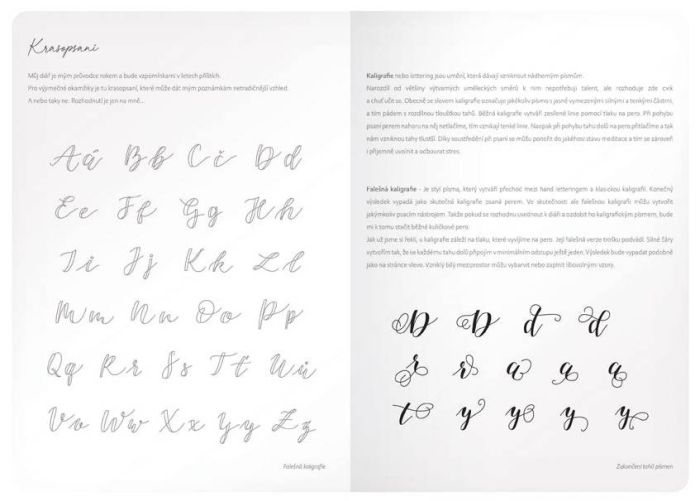 Krasopsaní
Můj diář je mým průvodce rokem a bude vzpomínkami v letech příštích.
Pro výjimečné okamžiky je tu krasopsaní, které může dát mým poznámkám netradičnější vzhled.
A nebo taky ne. Rozhodnutí je jen na mně...
Aá Bb Cč Dd
Ee Ff Gg Hh
Ii Jj Kk Ll
Mm Nn Oo Pp
Qq Rr Ss Tť Uů
Vv Ww Xx Yy Zz
Falešná kaligrafie
Kaligrafie nebo lettering jsou umění, která dávají vzniknout nádherným písmům.
Narozdíl od většiny výtvarných uměleckých směrů k nim nepotřebuji talent, ale rozhoduje zde cvik
a chuť učit se. Obecně se slovem kaligrafie označuje jakékoliv písmo s jasně vymezenými silnými a tenkými částmi,
a tím pádem s rozdílnou tloušťkou tahů. Běžná kaligrafie vytváří zesílené linie pomocí tlaku na pero. Při pohybu
psaní perem nahoru na něj netlačíme, tím vznikají tenké linie. Naopak při pohybu tahu dolů na pero přitlačíme a tak
nám vzniknou tahy tlustší. Díky soustředění při psaní se můžu ponořit do jakéhosi stavu meditace a tím se zároveň
i příjemně uvolnit a odbourat stres.
Falešná kaligrafie - Je styl písma, který vytváří přechod mezi hand letteringem a klasickou kaligrafií. Konečný
výsledek vypadá jako skutečná kaligrafie psaná perem. Ve skutečnosti ale falešnou kaligrafii můžu vytvořit
jakýmkoliv psacím nástrojem. Takže pokud se rozhodnu usednout k diáři a ozdobit ho kaligrafickým písmem, bude
mi k tomu stačit běžné kuličkové pero.
Jak už jsme si řekli, u kaligrafie záleží na tlaku, který vyvíjíme na pero. Její falešná verze trošku podvádí. Silné čáry
vytvořím tak, že ke každému tahu dolů připojím v minimálním odstupu ještě jeden. Výsledek bude vypadat podobně
jako na stránce vlevo. Vzniklý bílý meziprostor můžu vybarvit nebo zaplnit libovolnými vzory.
D D d d
r r a a a
t y y y y
Zakončení tahů písmen